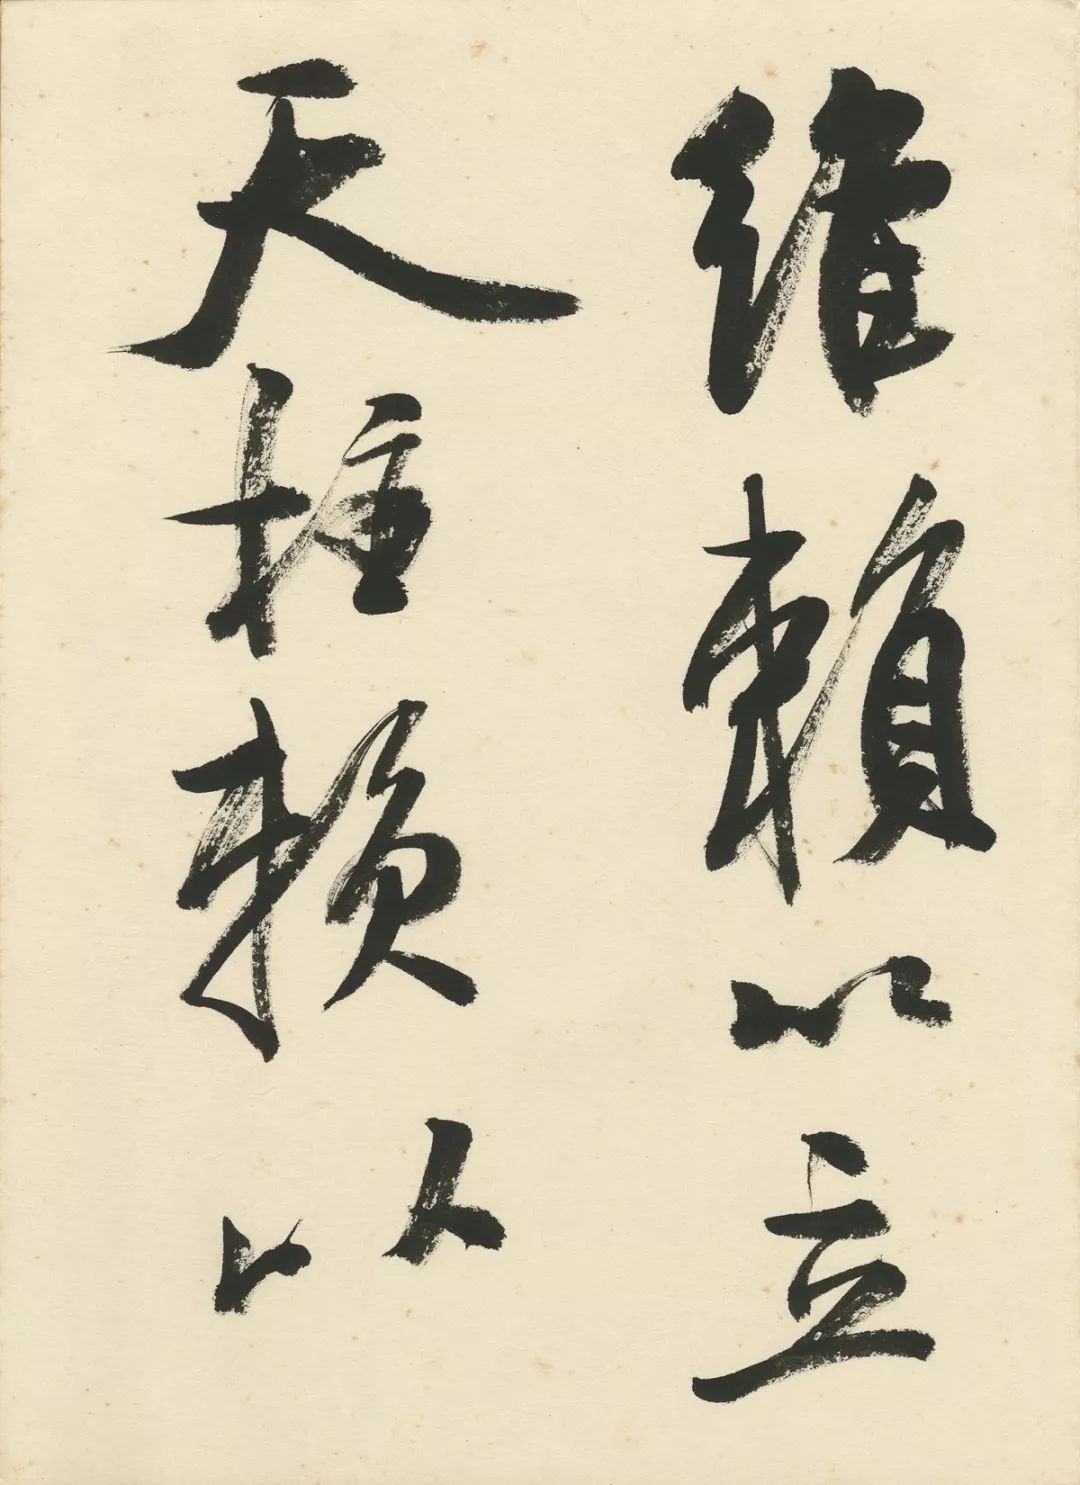 維賴以立
天柱賴以